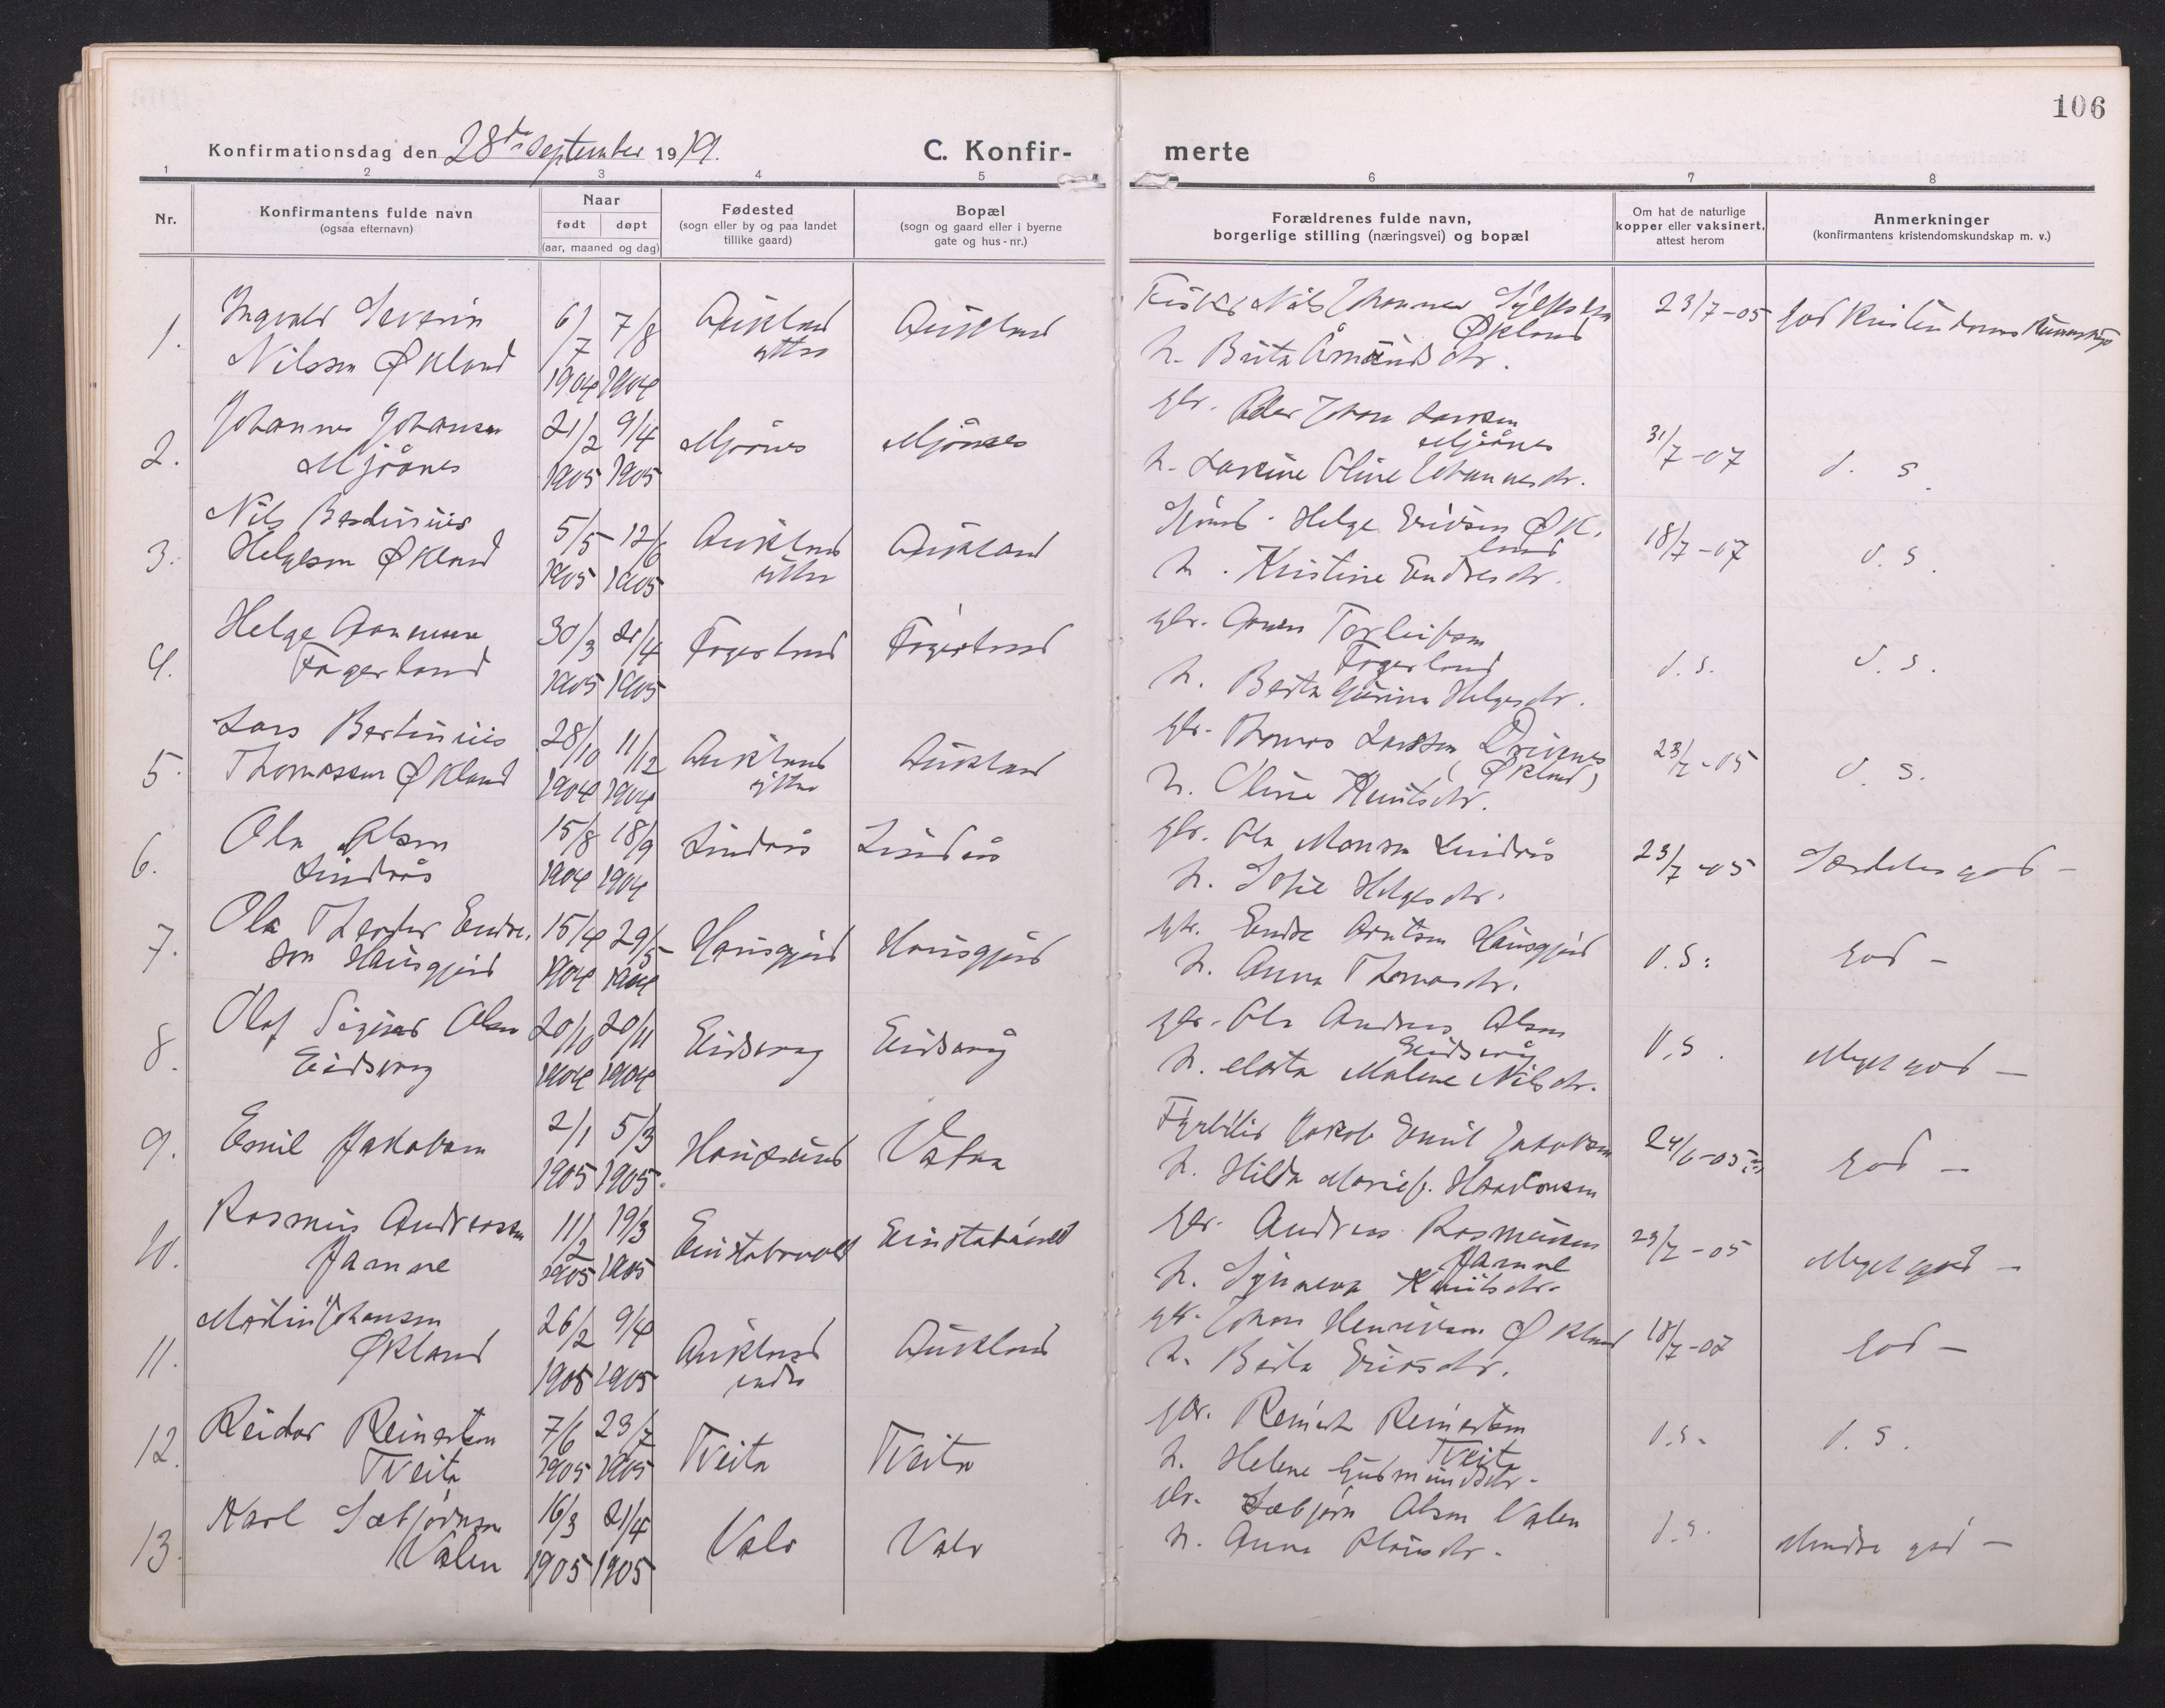 106
Konfirmationsdag den 28de September 1919.
C. Konfir-
merte
1 2 3 4 5 6 7 8
Nr.
Konfirmantens fulde navn
(ogsaa efternavn)
Naar
født døpt
(aar, maaned og dag)
Fødested
(sogn eller by og paa landet
tillike gaard)
Bopæl
(sogn og gaard eller i byerne
gate og hus-nr.)
Forældrenes fulde navn,
borgerlige stilling (næringsvei) og bopæl
Om hat de naturlige
kopper eller vaksinert,
attest herom
Anmerkninger
(konfirmantens kristendomskundskap m. v.)
1. Ingvald Severin 6/7 7/8 Aukland Aukland Fisker Nils Johannes 23/7-05 God Kristendomskundskap
Nilssen Økland 1904 1904 yttre Økland
h. Brita Åmundsdtr.
2. Johannes Johansen 21/2 9/4 Mjånes Mjånes gbr. Peder Johan Larsen 31/7-07 d. s.
Mjånes 1905 1905 Mjånes
h. Larsine Oline Johannesdtr.
3. Nils Bertinius 5/5 12/6 Aukland Aukland Helge Eriksen Økland 18/7-07 d. s.
Helgesen Økland 1905 1905 yttre
h. Kristine Endresdtr.
4. Helge Aanensen 30/3 21/4 Fagerland Fagerland gbr. Aanen Torleifsen d. s. d. s.
Fagerland 1905 1905 Fagerland
h. Berta Gurina Helgesdtr.
5. Lars Bertinius 28/10 11/12 Aukland Aukland gbr. Thomas Larssen Drivenes 23/7-05 d. s.
Thomassen Økland 1904 1904 yttre (Økland)
h. Oline Knutsdtr.
6. Ola Olsen 15/8 18/9 Lindås Lindås gbr. Ola Monsen Lindås 23/7-05 Særdeles god -
Lindås 1904 1904
h. Sofie Helgesdtr.
7. Ola Theodor Endre- 15/4 29/5 Hausgjerd Hausgjerd gbr. Endre Hausgjerd d. s. God -
sen Hausgjerd 1904 1904
h. Anna Thomasdtr.
8. Olaf Sigurd Olsen 20/10 20/11 Eidsvåg Eidsvåg gbr. Ola Andreas Olsen d. s. Meget god -
Eidsvåg 1904 1904 Eidsvåg
h. Marta Malene Nilsdtr.
9. Emil Jakobsen 2/1 5/3 Haugesund Vatna Fyrbøter Jakob Emil Jakobsen 24/6-05 God -
1905 1905
h. Hilda Marie f. Haakonsen
10. Rasmus Andreassen 11/2 19/3 Einstabøvoll Einstabøvoll gbr. Andreas Rasmussen 23/7-05 Meget god -
Jamne 1905 1905 Jamne
h. Synneva Knutsdtr.
11. Martin Johansen 26/2 9/4 Aukland Aukland gbr. Johan Henriksen Økland 18/7-07 God -
Økland 1905 1905 indre
h. Berta Eriksdtr.
12. Reidar Reinertsen 7/6 23/7 Tveita Tveita gbr. Reinert Reinertsen d. s. d. s.
Tveita 1905 1905 Tveita
h. Helene Gudmundsdtr.
13. Karl Sæbjørnsen 16/3 21/4 Vale Vale gbr. Sæbjørn Olsen Valen d. s. Mindre god -
Valen 1905 1905
h. Anna Olausdtr.